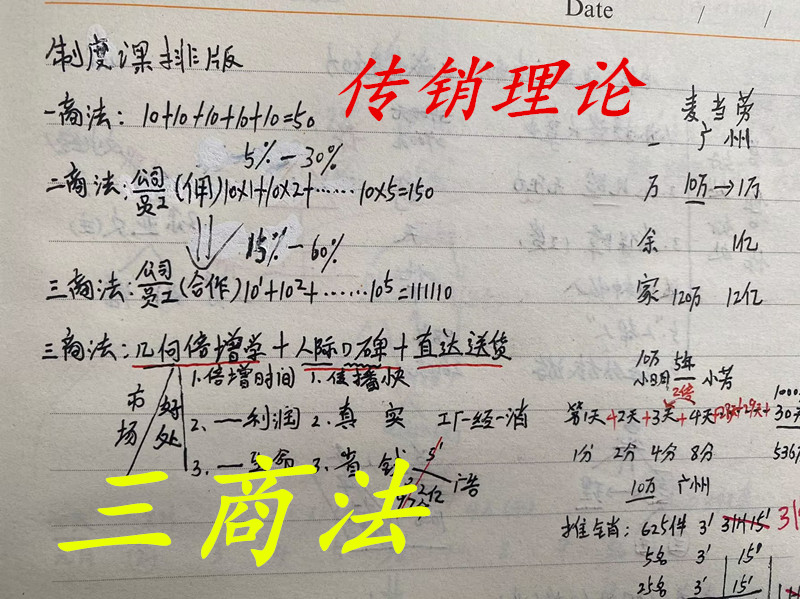 Date / /
制度课排版
传销理论
一商法: 10+10+10+10+10=50
5% — 30%
二商法: 公司/员工 (佣) 10×1+10×2+……10×5=150
15% — 60%
三商法: 公司/员工 (合作) 10¹+10²+……10⁵=111110
三商法: 几何倍增学+人际口碑+直达送货
市场
好处
1. 倍增时间 1. 传播快
2. 一利润 2. 真实 工厂一经一消
3. 一生命 3. 省钱
广告
三商法
麦当劳
一 广州
万 10万→1万
余 1亿
家 120万 12亿
10万 5年
小日月 2倍 小芳
第1天+2天+3天+4天+28天+29天+30天
1分 2分 4分 8分 536万
10万 广州
推销: 625件 3'
5名 3' 15'
25名 3' 15'